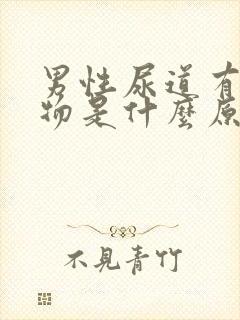 男性尿道有
物是什麼原
不見青竹